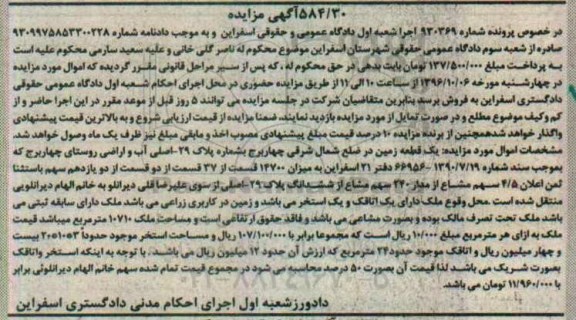 ۵۸۴/۳۰آگهی مزایده
در خصوص پرونده شماره ۹۳۰۳۶۹ اجرا شعبه اول دادگاه عمومی و حقوقی اسفراین و به موجب دادنامه شماره ۹۳۰۹۹۷۵۸۵۳۳۰۰۲۲۸
صادره از شعبه سوم دادگاه عمومی حقوقی شهرستان اسفراین موضوع محکوم له ناصر گلی خانی و علیه سعید سارمی محکوم علیه است
به پرداخت مبلغ ۱۳۷/۵۰۰/۰۰۰ تومان بابت بدهی در حق محکوم له، که پس از سیر مراحل قانونی مقرر گردیده که اموال مورد مزایده
در چهارشنبه مورخه ۱۳۹۶/۱۰/۰۶ از ساعت ۱۰ الی ۱۱ از طریق مزایده حضوری در محل اجرای احکام شعبه اول دادگاه عمومی حقوقی
دادگستری اسفراین به فروش برسد بنابرین متقاضیان شرکت در جلسه مزایده می توانند ۵ روز قبل از موعد مقرر در این اجرا حاضر و از
کم وکیف موضوع مطلع و در صورت تمایل از مورد مزایده بازدید نمایند، ضمنا مزایده از قیمت ارزیابی شروع و به بالاترین قیمت پیشنهادی
واگذار خواهد شدهمچنین از برنده مزایده ۱۰ درصد قیمت مبلغ پیشنهادی مصوب اخذ و مابقی مبلغ نیز ظرف یک ماه وصول خواهد شد.
مشخصات اموال مورد مزایده: یک قطعه زمین در ضلع شمال شرقی چهاربرج بشماره پلاک ۲۹-اصلی آب و اراضی روستای چهاربرج که
بموجب سند شماره ۱۳۹۰/۷/۱۹- ۶۶۹۵۶ دفتر ۳۱ اسفراین به میزان ۱۴۷۰۰ قسمت از ۳۷ قسمت از دو قسمت از دو یازدهم سهم باستثنا
ثمن اعلان ۴/۵ سهم مشاع از مدار ۲۴۰ سهم مشاع از ششدانگ پلاک ۲۹-اصلی از سوی علیرضا قلی دیرانلو به خانم الهام دیرانلویی
منتقل شده است محل وقوع ملک دارای یک اتاقک و یک استخر می باشد و زمین در کاربری زراعی می باشد ملک دارای سابقه ثبتی می
باشد ملک تحت تصرف مالک بوده و بصورت مشاعی می باشد و فاقد حقوق ارتفاقی است و مساحت ملک ۱۰۷۱۰ مترمربع میباشد قیمت
ملک به ازای هر مترمربع مبلغ ۱۰/۰۰۰ ریال است که مجموعا برابر با ۱۰۷/۱۰۰/۰۰۰ ریال و مساحت استخر موجود حدوداً بیست
و چهار میلیون ریال و اتاقک موجود حدود۲۴ مترمربع که ارزش آن حدود ۱۲ میلیون ریال می باشد. با توجه به اینکه استخر واتاقک
بصورت شریک می باشد لذا قیمت آن بصورت ۵۰ درصد محاسبه می شود در مجموع قیمت تمام شده سهم خانم الهام دیرانلوئی برابر
با ۱۱/۹۶۰/۰۰۰ تومان می باشد.
دادورزشعبه اول اجرای احکام مدنی دادگستری اسفراین